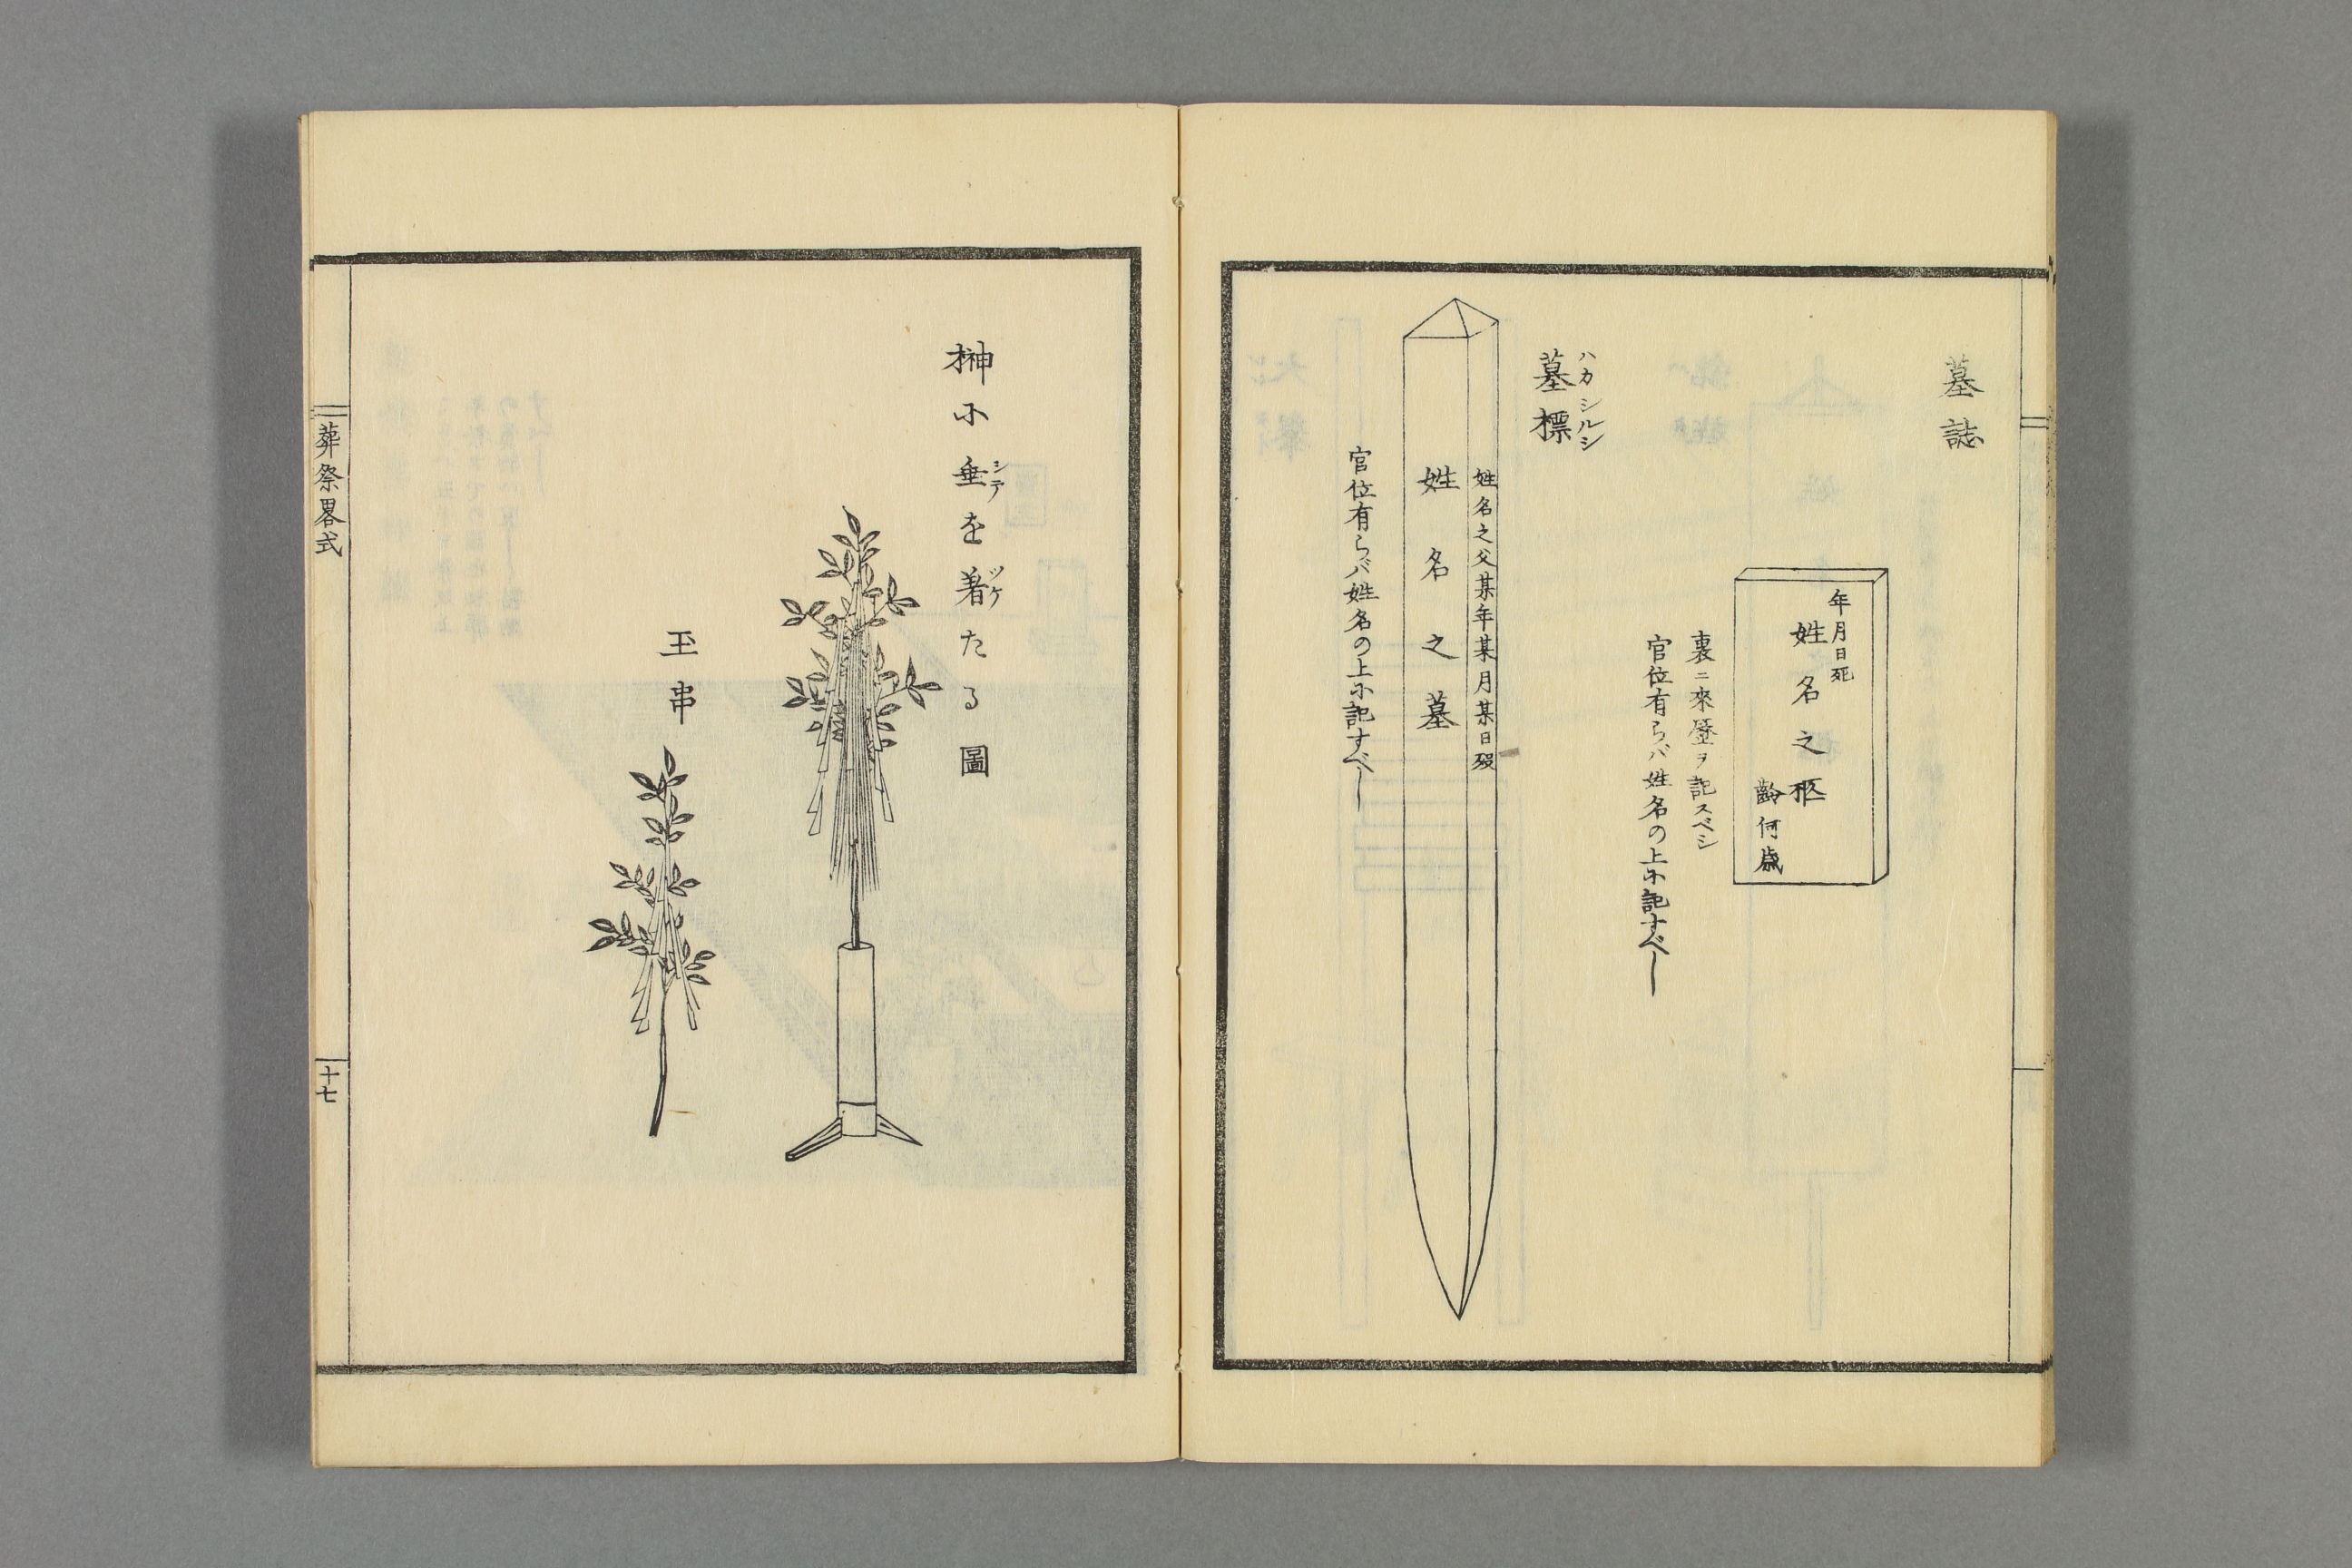 墓誌
年月日死
姓名之柩
齢何歳
裏ニ來歴ヲ記スベシ
官位有らバ姓名の上に記すべし
墓標
ハカシルシ
姓名之父某年某月某日歿
姓名之墓
官位有らバ姓名の上に記すべし
榊に垂を著たる圖
シデ
ツケ
玉串
葬祭畧式
十七